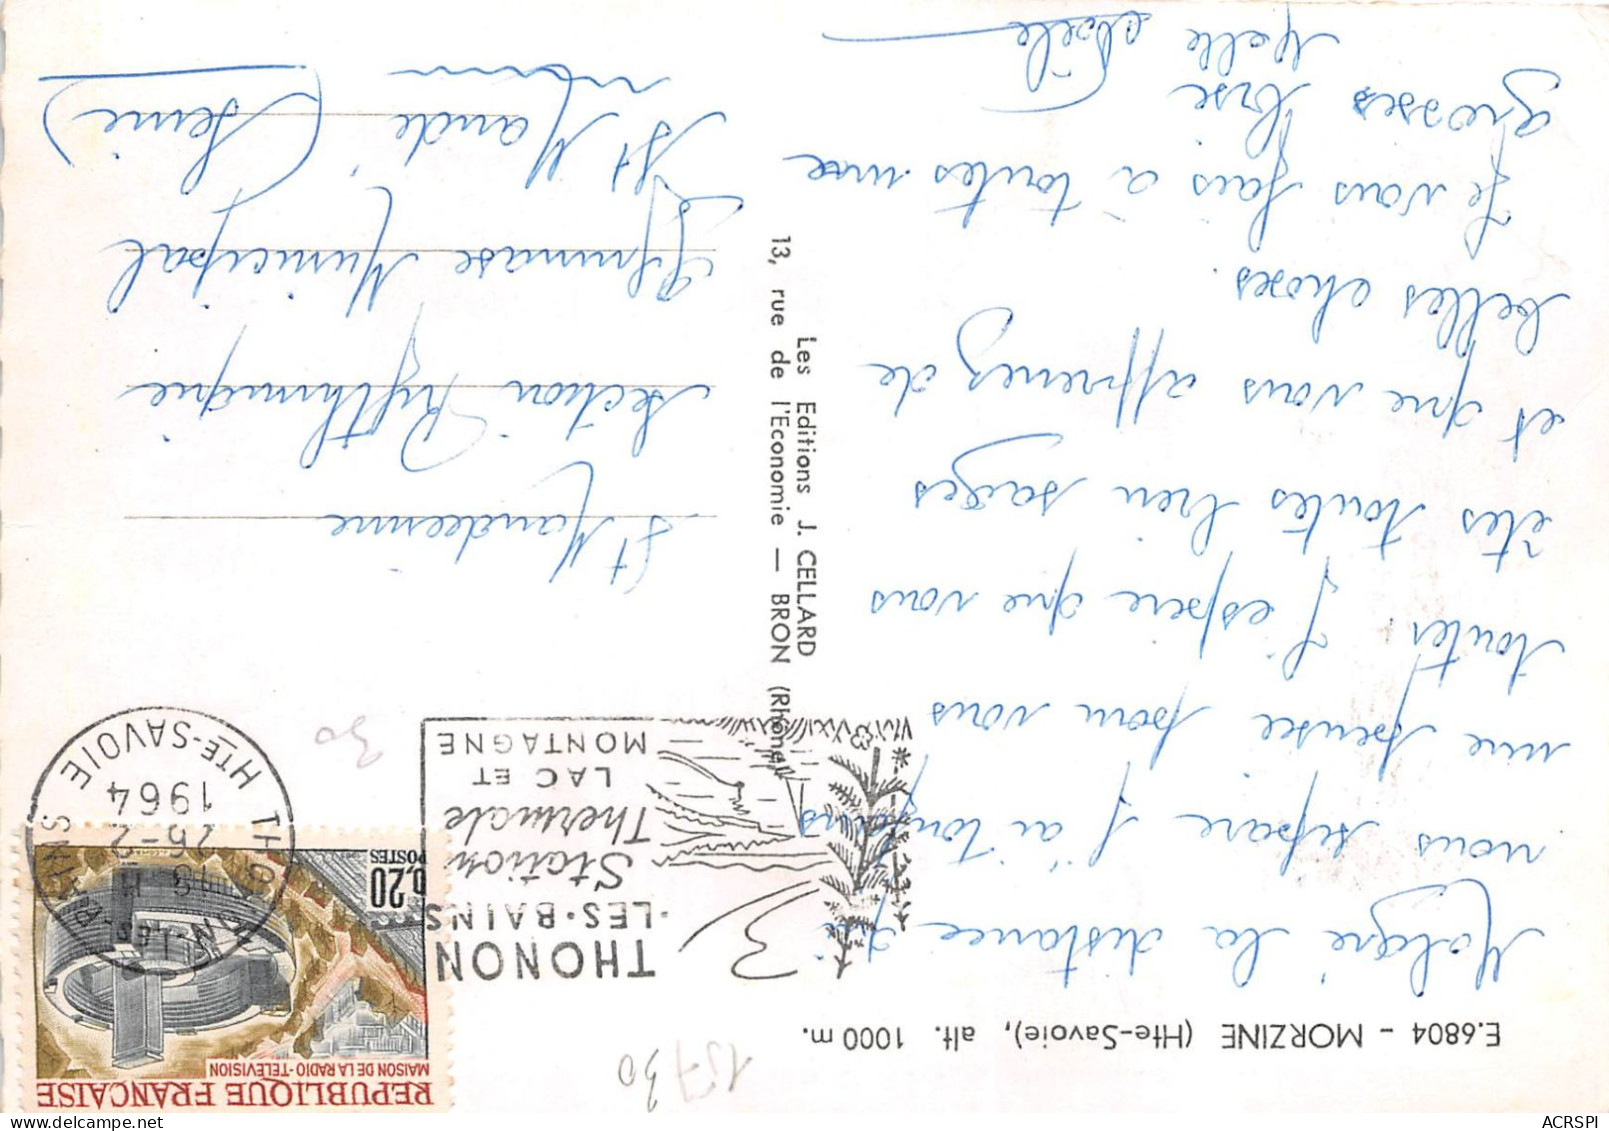 E.6804 - MORZINE (Hte-Savoie), alt. 1000 m.
Malgré la distance qui
nous sépare j'ai toujours
une pensée pour vous
toutes. J'espère que vous
êtes toutes bien sages
et que vous apprenez de
belles choses.
Je vous fais à toutes une
grosses bise
Melle
Les Editions J. CELLARD
13, rue de l'Economie — BRON (Rhône)
REPUBLIQUE FRANÇAISE
MAISON DE LA RADIO-TÉLÉVISION
0,20
POSTES
THONON-LES-BAINS
HTE-SAVOIE
1964
THONON
·LES·BAINS·
Station
Thermale
LAC ET
MONTAGNE
St Mandéenne
Section Rythmique
Gymnase Municipal
St Mandé (Seine)
30
15730
ACRSPI